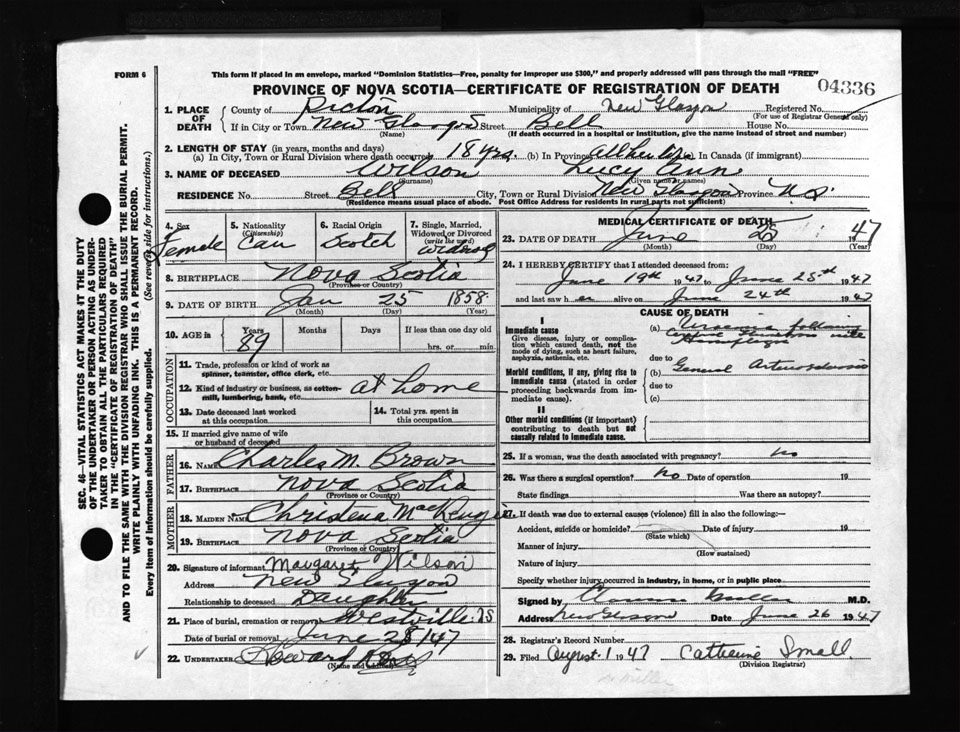 FORM 6
This form if placed in an envelope, marked "Dominion Statistics—Free, penalty for improper use $300," and properly addressed will pass through the mail "FREE"
PROVINCE OF NOVA SCOTIA—CERTIFICATE OF REGISTRATION OF DEATH
04336
SEC. 46—VITAL STATISTICS ACT MAKES IT THE DUTY
OF THE UNDERTAKER OR PERSON ACTING AS UNDER-
TAKER TO OBTAIN ALL THE PARTICULARS REQUIRED
IN THE "CERTIFICATE OF REGISTRATION OF DEATH"
AND TO FILE THE SAME WITH THE DIVISION REGISTRAR WHO SHALL ISSUE THE BURIAL PERMIT.
WRITE PLAINLY WITH UNFADING INK. THIS IS A PERMANENT RECORD.
Every item of information should be carefully supplied. (See reverse side for instructions.)
1. PLACE OF DEATH County of Pictou Municipality of New Glasgow Registered No.
(For use of Registrar General only)
If in City or Town New Glasgow Street Bell House No.
(Name) (If death occurred in a hospital or institution, give the name instead of street and number)
2. LENGTH OF STAY (in years, months and days)
(a) In City, Town or Rural Division where death occurred 18 yrs. (b) In Province All her life (c) In Canada (if immigrant)
3. NAME OF DECEASED Wilson Lucy Ann
(Surname) (Given name or names)
RESIDENCE No. Street Bell City, Town or Rural Division New Glasgow Province N.S.
(Residence means usual place of abode. Post Office Address for residents in rural parts not sufficient)
4. Sex Female
5. Nationality (Citizenship) Can
6. Racial Origin Scotch
7. Single, Married, Widowed or Divorced (write the word) Widow
8. BIRTHPLACE Nova Scotia
(Province or Country)
9. DATE OF BIRTH Jan 25 1858
(Month) (Day) (Year)
10. AGE is Years 89 Months Days If less than one day old
hrs. or min.
OCCUPATION
11. Trade, profession or kind of work as spinner, teamster, office clerk, etc.
12. Kind of industry or business, as cotton-mill, lumbering, bank, etc. at home
13. Date deceased last worked at this occupation
14. Total yrs. spent in this occupation
15. If married give name of wife or husband of deceased
FATHER
16. Name Charles M. Brown
17. Birthplace Nova Scotia
(Province or Country)
MOTHER
18. Maiden Name Christena MacKenzie
19. Birthplace Nova Scotia
(Province or Country)
20. Signature of informant Margaret Wilson
Address New Glasgow
Relationship to deceased Daughter
21. Place of burial, cremation or removal Westville N.S
Date of burial or removal June 28/47
22. UNDERTAKER Howard
(Name and address)
MEDICAL CERTIFICATE OF DEATH
23. DATE OF DEATH June 25 1947
(Month) (Day) (Year)
24. I HEREBY CERTIFY that I attended deceased from:
June 19th 1947 to June 25th 1947
and last saw her alive on June 24th 1947
CAUSE OF DEATH
I
Immediate cause
Give disease, injury or complication which caused death, not the mode of dying, such as heart failure, asphyxia, asthenia, etc.
(a) Uraemia following
Cerebral Thrombosis with
Hemiplegia
Morbid conditions, if any, giving rise to immediate cause (stated in order proceeding backwards from immediate cause).
due to
(b) General Arteriosclerosis
due to
(c)
II
Other morbid conditions (if important) contributing to death but not causally related to immediate cause.
25. If a woman, was the death associated with pregnancy? no
26. Was there a surgical operation? no Date of operation 19
State findings Was there an autopsy?
27. If death was due to external causes (violence) fill in also the following:—
Accident, suicide or homicide? Date of injury 19
(State which)
Manner of injury
(How sustained)
Nature of injury
Specify whether injury occurred in industry, in home, or in public place
Signed by Clarence Miller M.D.
Address New Glasgow Date June 26 1947
28. Registrar's Record Number
29. Filed August 1 1947 Catherine Small
(Division Registrar)